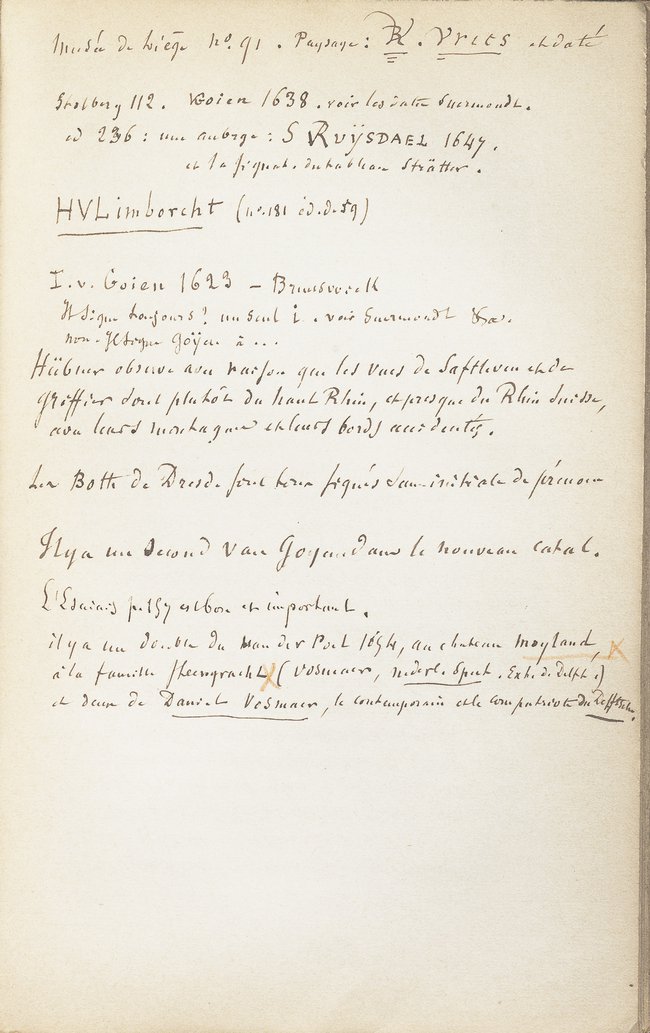 Musée de Liége no. 91. Paysage: R. VRIES et daté
Stolberg 112. VGoien 1638. voir les dates Suermondt.
id 236: une auberge: S RUŸSDAEL 1647.
et la signat. du tableau Strätter.
HVLimborcht (no. 181 éd. de 59)
I. v. Goien 1623 – Brunsvick
Il signe toujours? un seul i. voir Suermondt &a.
non. Il signe Goÿen à ...
Hübner observe avec raison que les vues de Saftleven et de
Griffier sont plutôt du haut Rhin, et presque du Rhin Suisse,
avec leurs montagnes et leurs bords accidentés.
Les Both de Dresde sont bien signés initiale de prénom
Il y a un second van Goyen dans le nouveau catal.
L'Esaias p. 157 est bon et important.
il y a un double du van der Poel 1654, au chateau Moyland,
à la famille Steengracht (Vosmaer, nederl. Spect. Exh. de Delft)
et deux de Daniel Vosmaer, le contemporain et le compatriote du Delftsche.